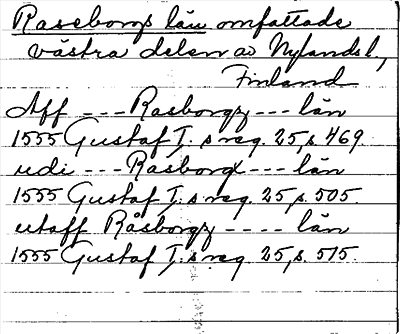 Raseborgs län omfattade
västra delen av Nylandsl.,
Finland
Aff --- Rasborgz --- län
1555 Gustaf I:s reg. 25, s. 469.
udi --- Rasborgx --- län
1555 Gustaf I:s reg. 25, s. 505.
utaff Råsborgz ---- län
1555 Gustaf I:s reg. 25, s. 515.